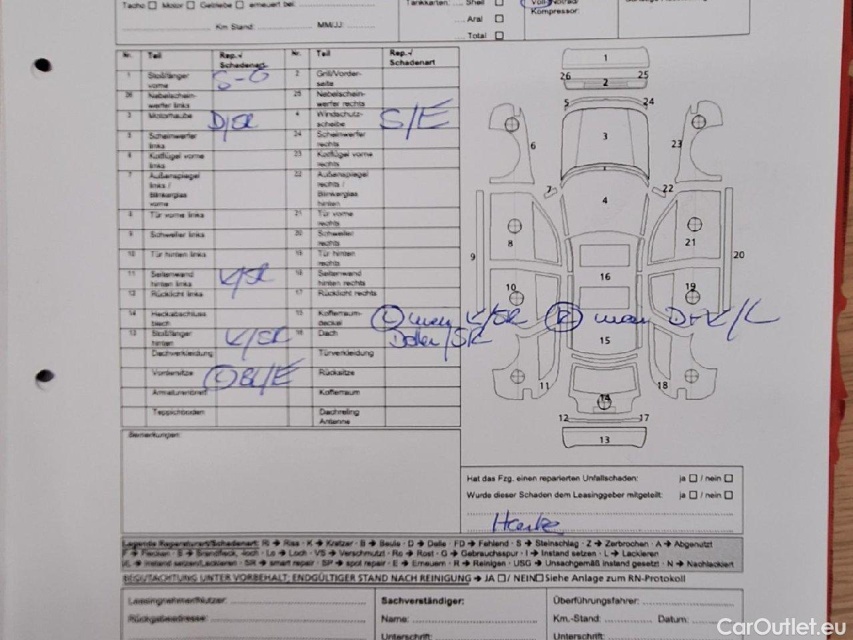 Tacho ☐ Motor ☐ Getriebe ☐ erneuert bei:
Tankkarten: Shell ☐
Aral ☐
Total ☐
Kompressor:
Km Stand: MM/JJ:
Nr. Teil Rep.-/ Schadenart Nr. Teil Rep.-/ Schadenart
1 Stoßfänger vorne S-G 2 Grill/Vorderseite
26 Nebelscheinwerfer links 25 Nebelscheinwerfer rechts
3 Motorhaube D/SR 4 Windschutzscheibe S/E
5 Scheinwerfer links 24 Scheinwerfer rechts
6 Kotflügel vorne links 23 Kotflügel vorne rechts
7 Außenspiegel links / Blinkerglas vorne 22 Außenspiegel rechts / Blinkerglas hinten
8 Tür vorne links 21 Tür vorne rechts
9 Schweller links 20 Schweller rechts
10 Tür hinten links 19 Tür hinten rechts
11 Seitenwand hinten links K/SR 18 Seitenwand hinten rechts
12 Rücklicht links 17 Rücklicht rechts
14 Heckabschlussblech 15 Kofferraumdeckel
13 Stoßfänger hinten K/SR 16 Dach
Dachverkleidung Türverkleidung
Vordersitze Rücksitze
Armaturenbrett Kofferraum
Teppichboden Dachreling Antenne
Bemerkungen:
1
26 25
2
5 24
3
6 23
7 22
4
8 21
9 20
16
10 19
15
11 18
14
12 17
13
Hat das Fzg. einen reparierten Unfallschaden: ja ☐ / nein ☐
Wurde dieser Schaden dem Leasinggeber mitgeteilt: ja ☐ / nein ☐
Legende Reparaturart/Schadenart: Ri → Riss - K → Kratzer - B → Beule - D → Delle - FD → Fehlend - S → Steinschlag - Z → Zerbrochen - A → Abgenutzt
F → Flecken - B → Brandfleck, -loch - Lo → Loch - VS → Verschmutzt - Ro → Rost - G → Gebrauchsspur - I → Instand setzen - L → Lackieren
IL → Instand setzen/Lackieren - SR → smart repair - SP → spot repair - E → Erneuern - R → Reinigen - USG → Unsachgemäß instand gesetzt - N → Nachlackiert
BEGUTACHTUNG UNTER VORBEHALT; ENDGÜLTIGER STAND NACH REINIGUNG → JA ☐ / NEIN☐ Siehe Anlage zum RN-Protokoll
Leasingnehmer/Nutzer: Sachverständiger: Überführungsfahrer:
Rückgabeadresse: Name: Km.-Stand: Datum:
Unterschrift: Unterschrift:
CarOutlet.eu